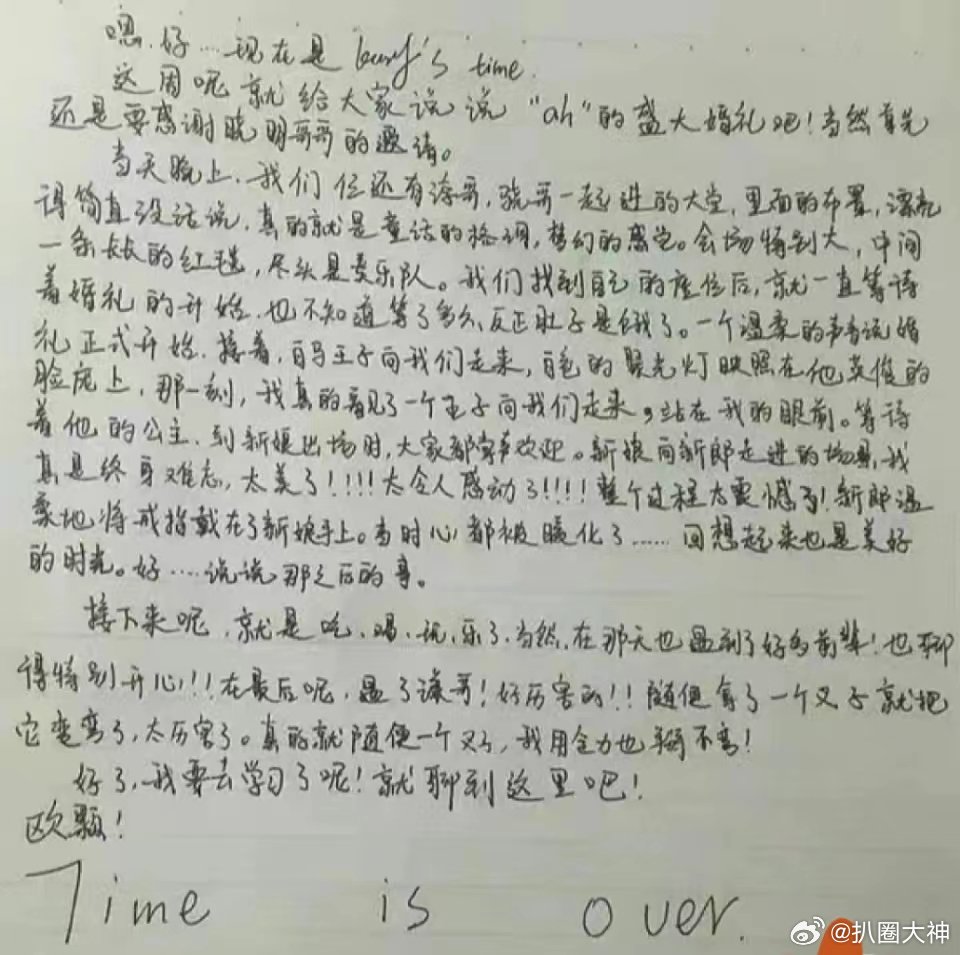 嗯.好……现在是 karry's time.
这周呢就给大家说说"ah"的盛大婚礼吧!当然首先
还是要感谢晓明哥哥的邀请。
当天晚上.我们仨还有涛哥,骁哥一起进的大堂,里面的布置,漂亮
得简直没话说,真的就是童话的格调,梦幻的感觉。会场特别大,中间
一条长长的红毯,尽头是交乐队。我们找到自己的座位后,就一直等待
着婚礼的开始.也不知道等了多久、反正肚子是饿了。一个温柔的声音说婚
礼正式开始.接着,白马王子向我们走来,白色的聚光灯映照在他英俊的
脸庞上,那一刻,我真的看见了一个王子向我们走来,站在我的眼前。等待
着他的公主.到新娘出场时,大家都掌声欢迎。新娘向新郎走进的场景,我
真是终身难忘,太美了!!!!太令人感动了!!!!整个过程太震憾了!新郎温
柔地将戒指戴在了新娘手上。当时心都被暖化了……回想起来也是美好
的时光。好……说说那之后的事。
接下来呢,就是吃、喝、玩、乐了.当然,在那天也遇到了好多前辈!也聊
得特别开心!!!在最后呢,遇了谦哥!好厉害的!!随便拿了一个叉子就把
它变弯了,太厉害了。真的就随便一个叉子,我用全力也掰不弯!
好了,我要去学习了呢!就聊到这里吧!
欧颗!
Time is over.
@扒圈大神